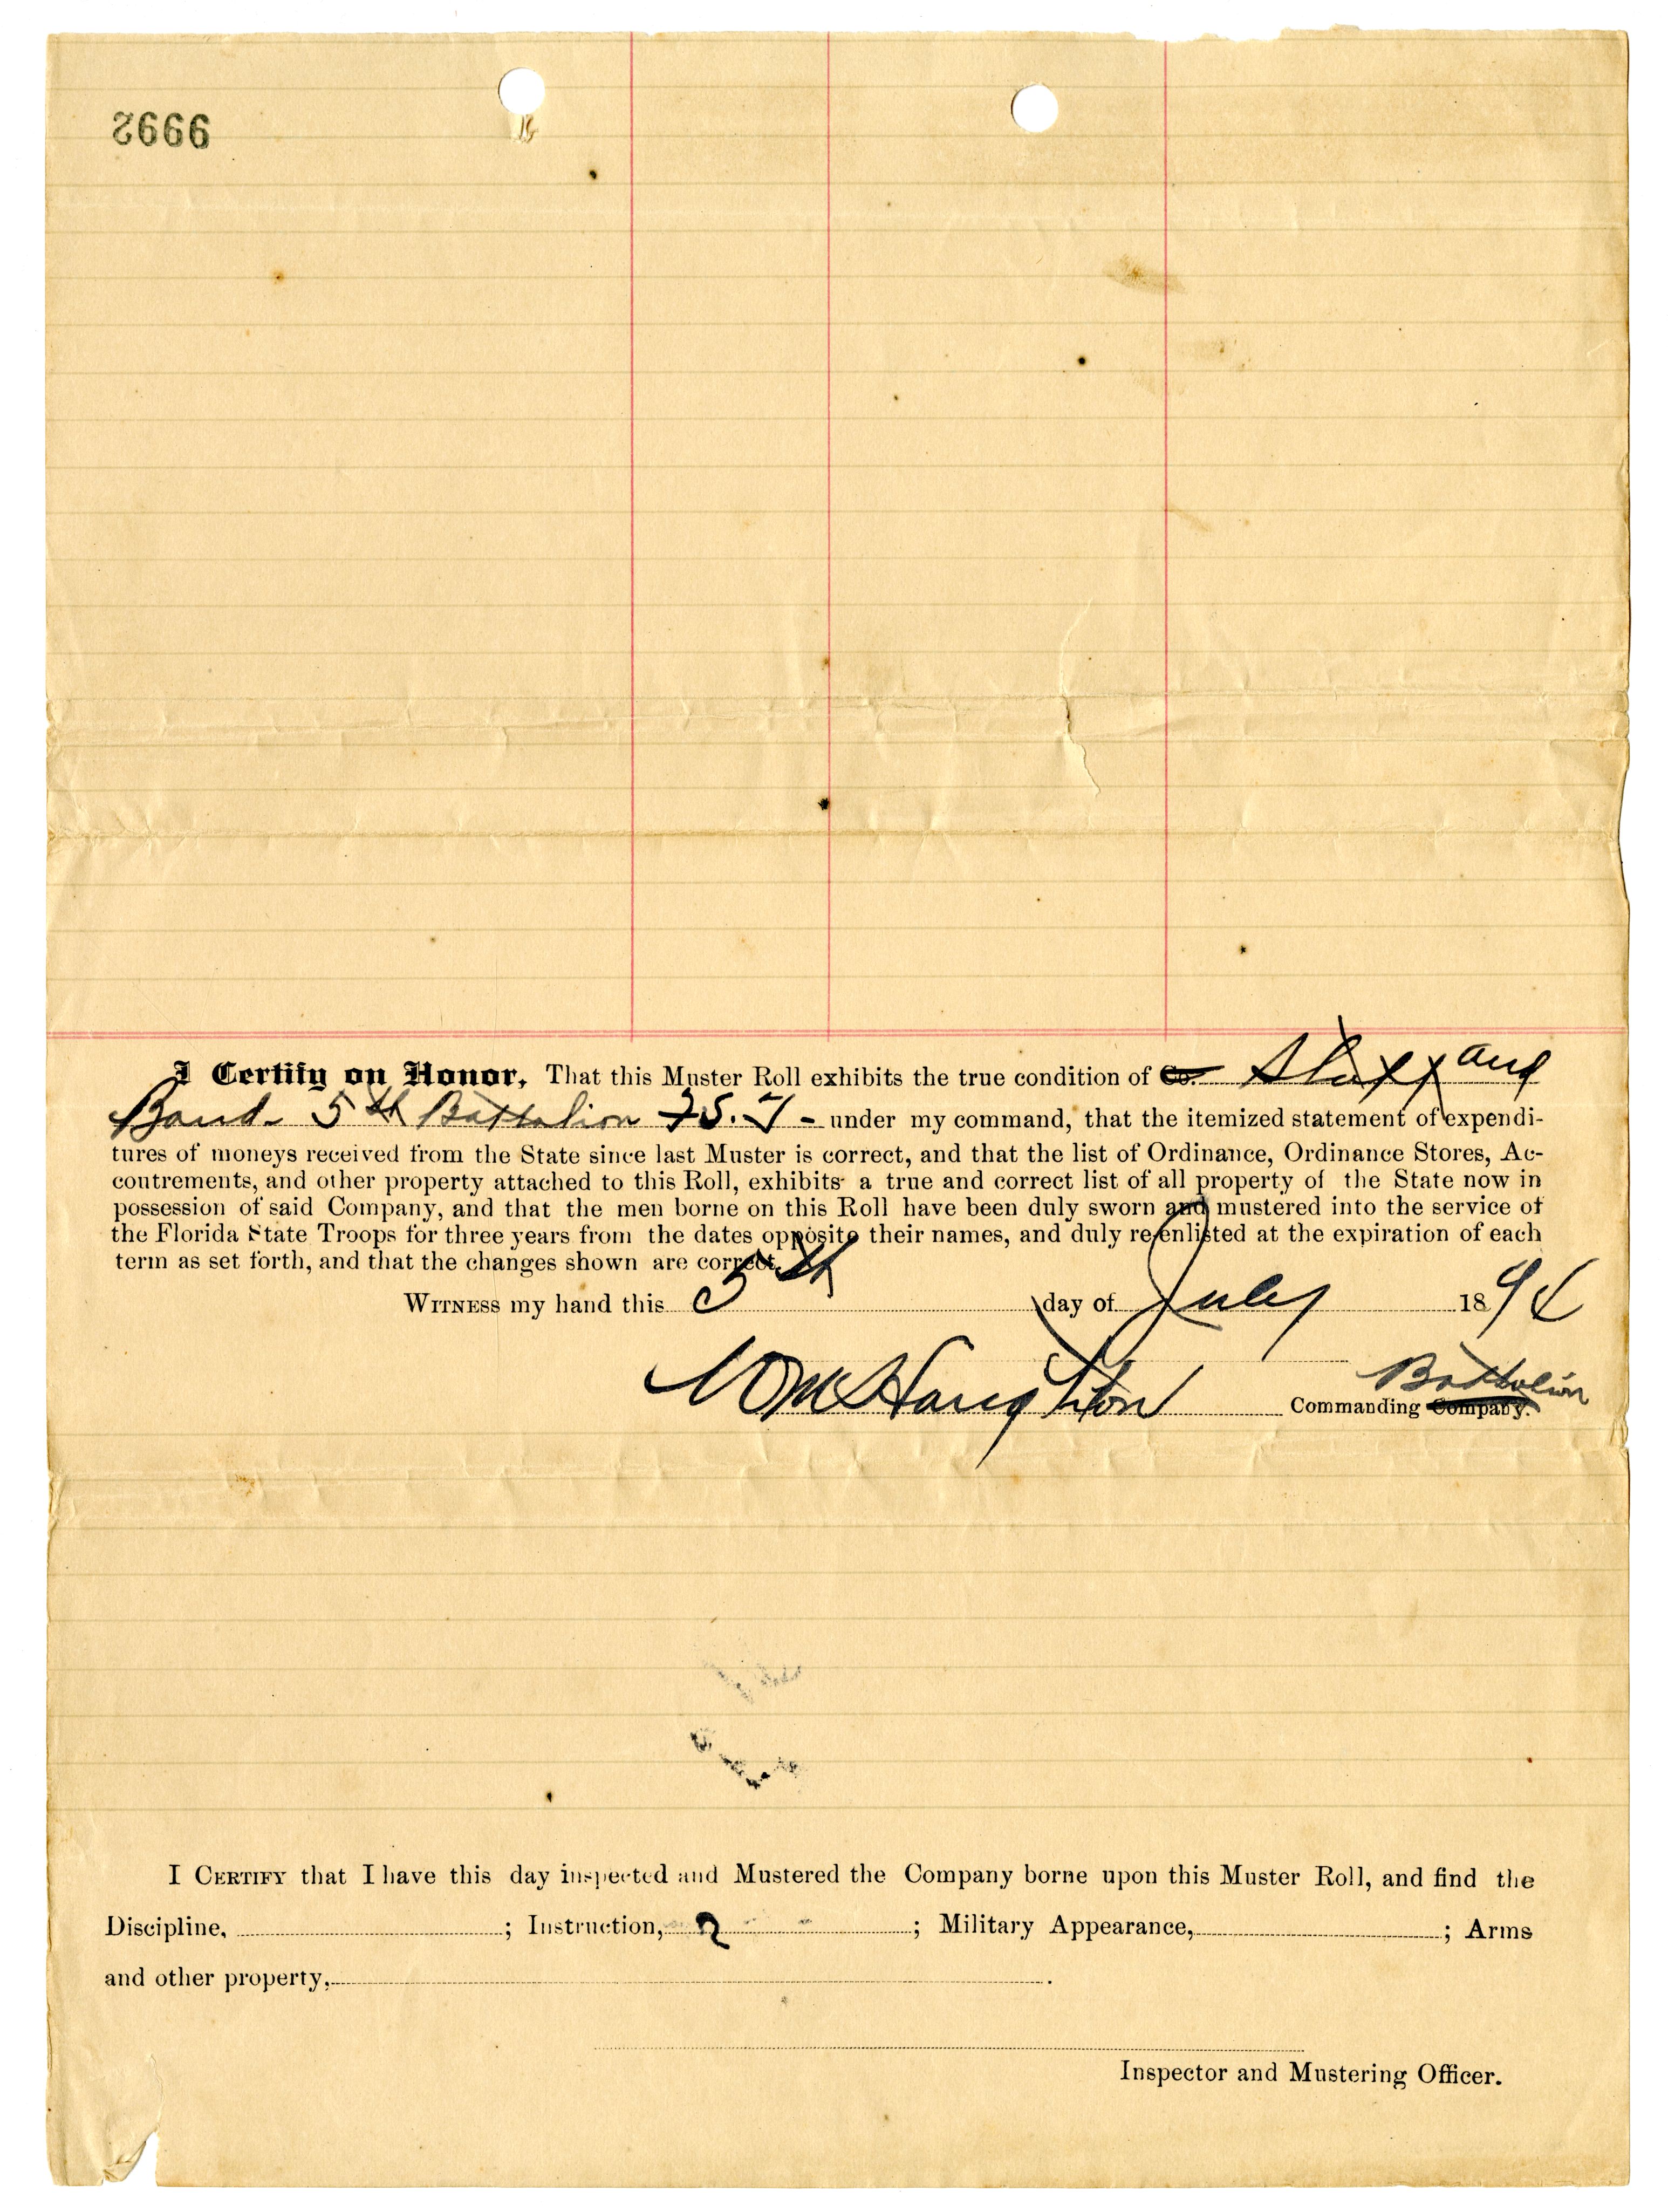 2666
I Certify on Honor, That this Muster Roll exhibits the true condition of Co. Staff and
Band 5th Battalion F.S.T - under my command, that the itemized statement of expendi-
tures of moneys received from the State since last Muster is correct, and that the list of Ordinance, Ordinance Stores, Ac-
coutrements, and other property attached to this Roll, exhibits a true and correct list of all property of the State now in
possession of said Company, and that the men borne on this Roll have been duly sworn and mustered into the service of
the Florida State Troops for three years from the dates opposite their names, and duly re-enlisted at the expiration of each
term as set forth, and that the changes shown are correct.
WITNESS my hand this 5th day of July 1894
Wm Haughton Commanding Company. Battalion
I CERTIFY that I have this day inspected and Mustered the Company borne upon this Muster Roll, and find the
Discipline, ; Instruction, ; Military Appearance, ; Arms
and other property, .
Inspector and Mustering Officer.